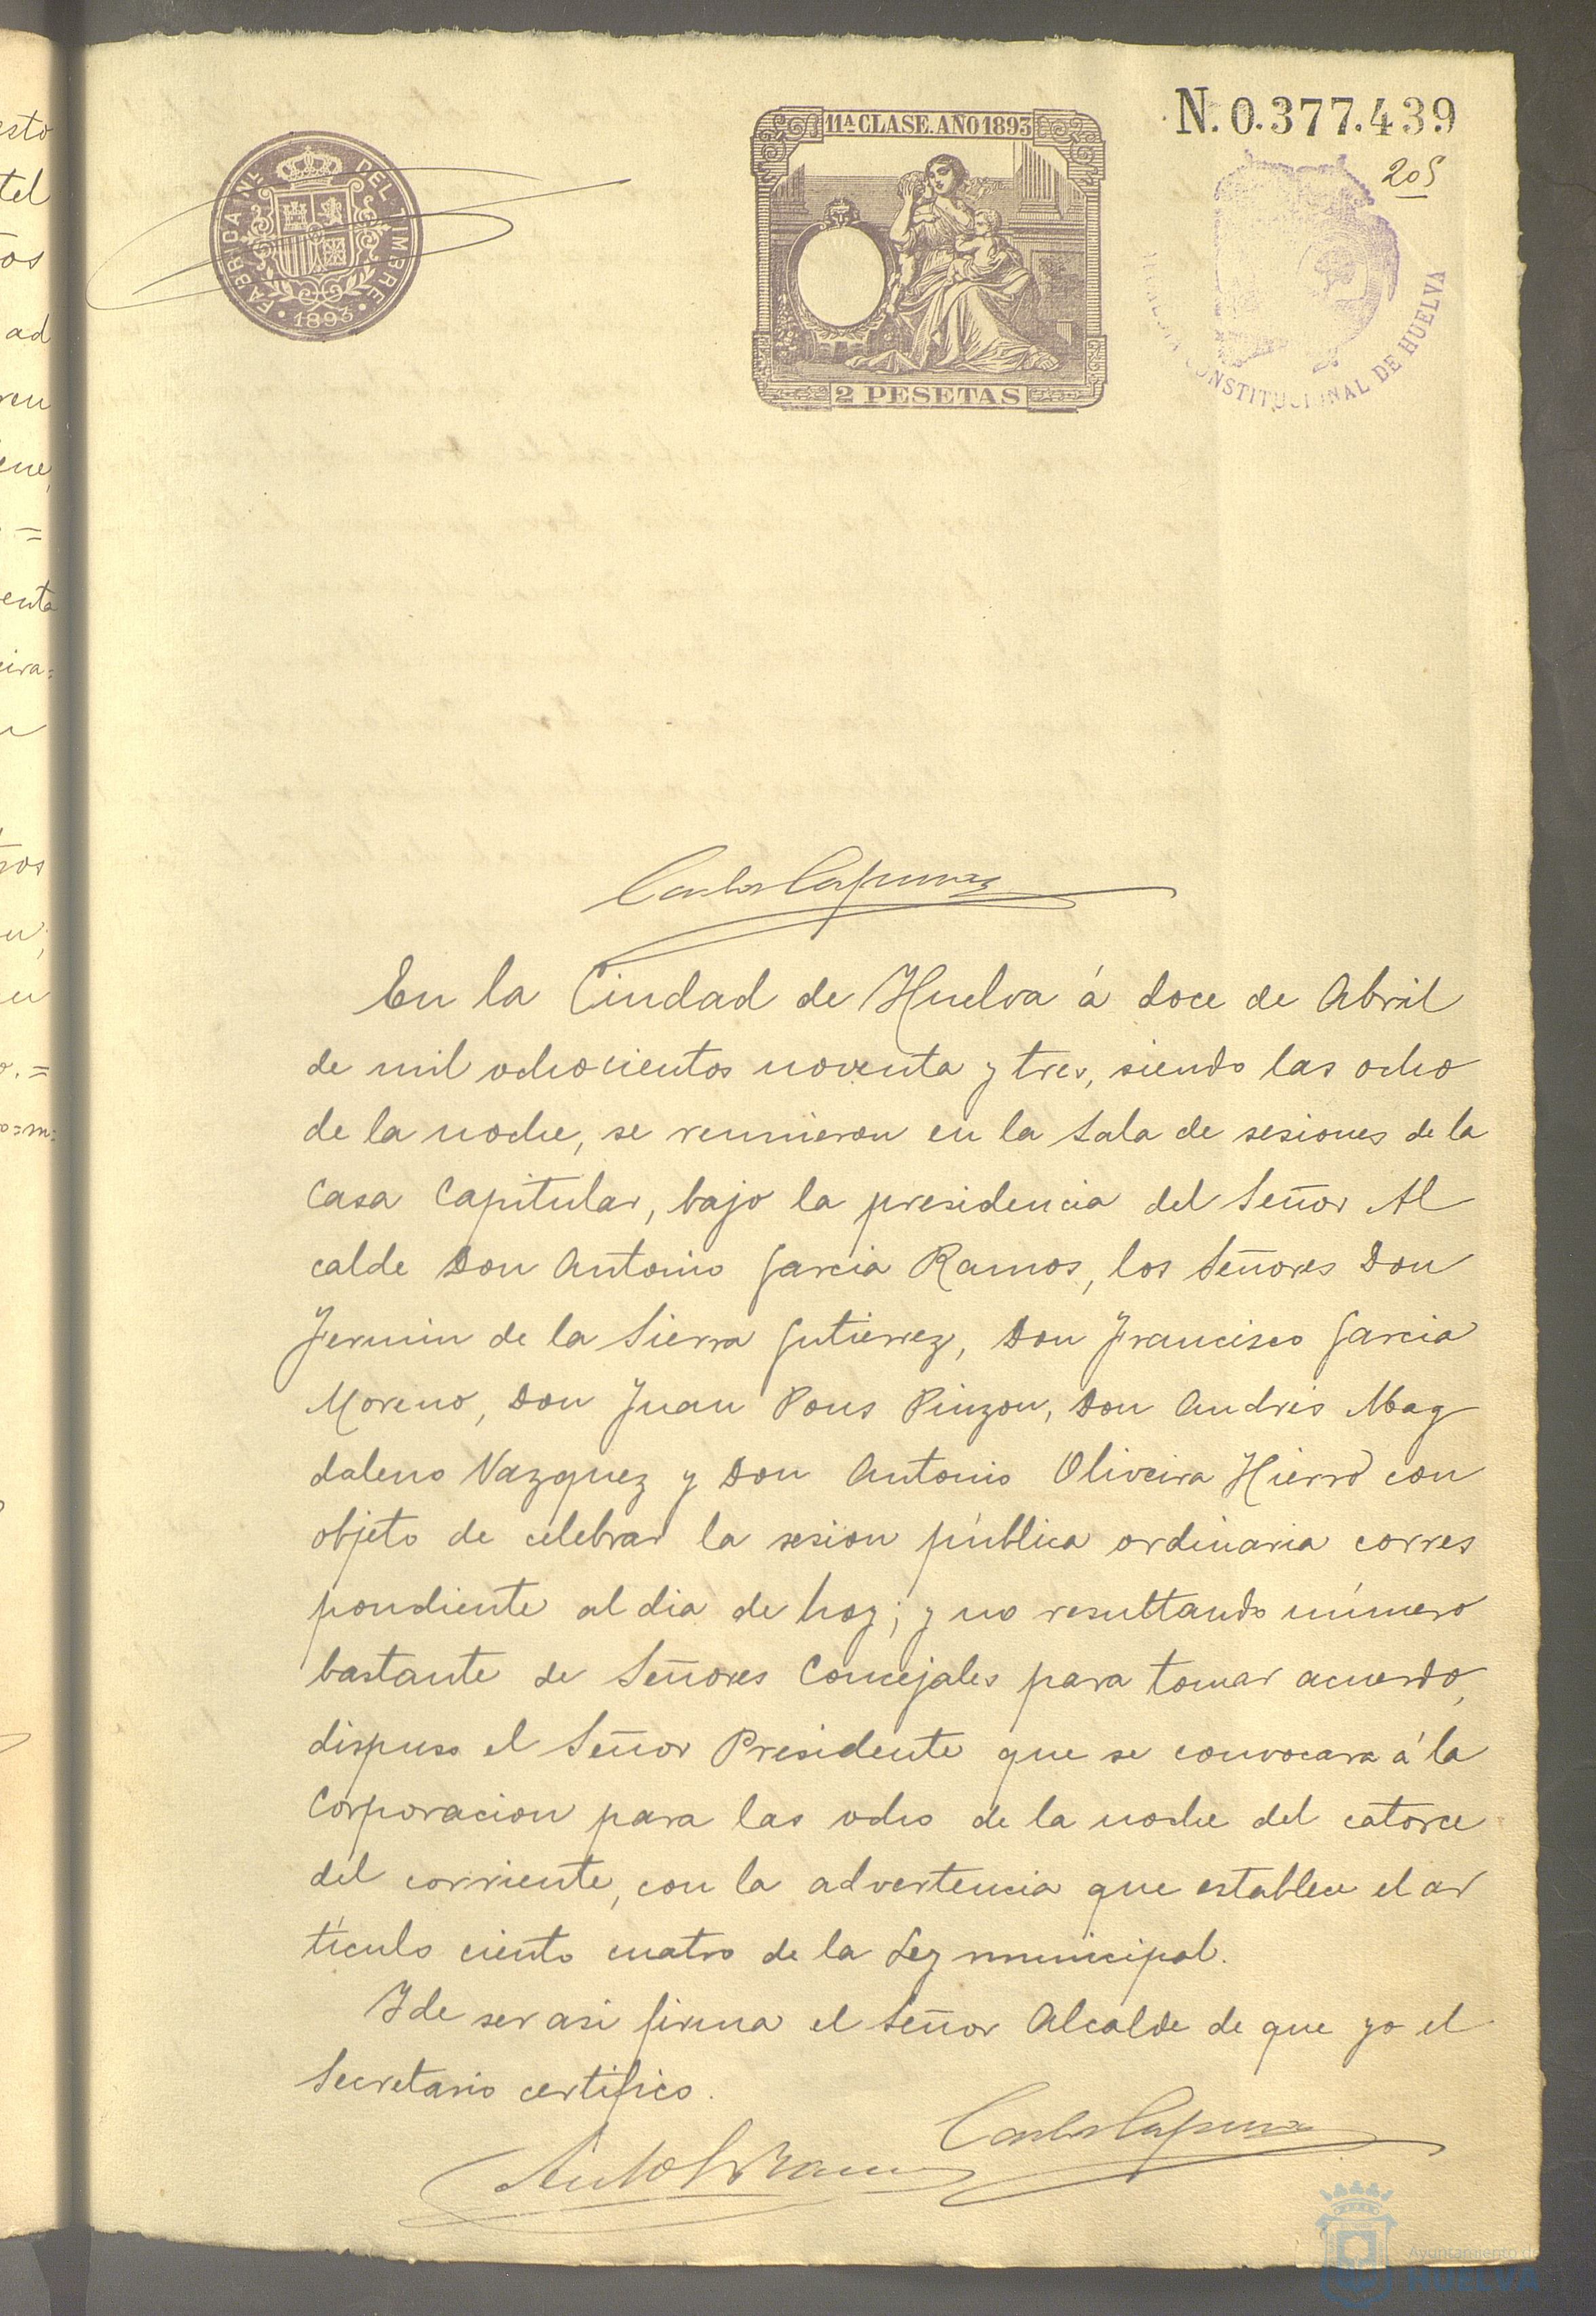 N. 0.377.439
205
11ª CLASE. AÑO 1893
FABRICA NL DEL TIMBRE
1893
2 PESETAS
CONSTITUCIONAL DE HUELVA
En la Ciudad de Huelva á doce de Abril
de mil ochocientos noventa y tres, siendo las ocho
de la noche, se reunieron en la Sala de sesiones de la
Casa Capitular, bajo la presidencia del Señor Al
calde Don Antonio Garcia Ramos, los Señores Don
Fermin de la Sierra Gutierrez, Don Francisco Garcia
Moreno, Don Juan Pons Pinzon, Don Andres Mag
daleno Vazquez y Don Antonio Oliveira Hierro con
objeto de celebrar la sesion pública ordinaria corres
pondiente al dia de hoy; y no resultando número
bastante de Señores Concejales para tomar acuerdo,
dispuso el Señor Presidente que se convocara á la
Corporacion para las ocho de la noche del catorce
del corriente, con la advertencia que establece el ar
tículo ciento cuatro de la Ley municipal.
Y de ser asi firma el Señor Alcalde de que yo el
Secretario certifico.
Ayuntamiento de
HUELVA